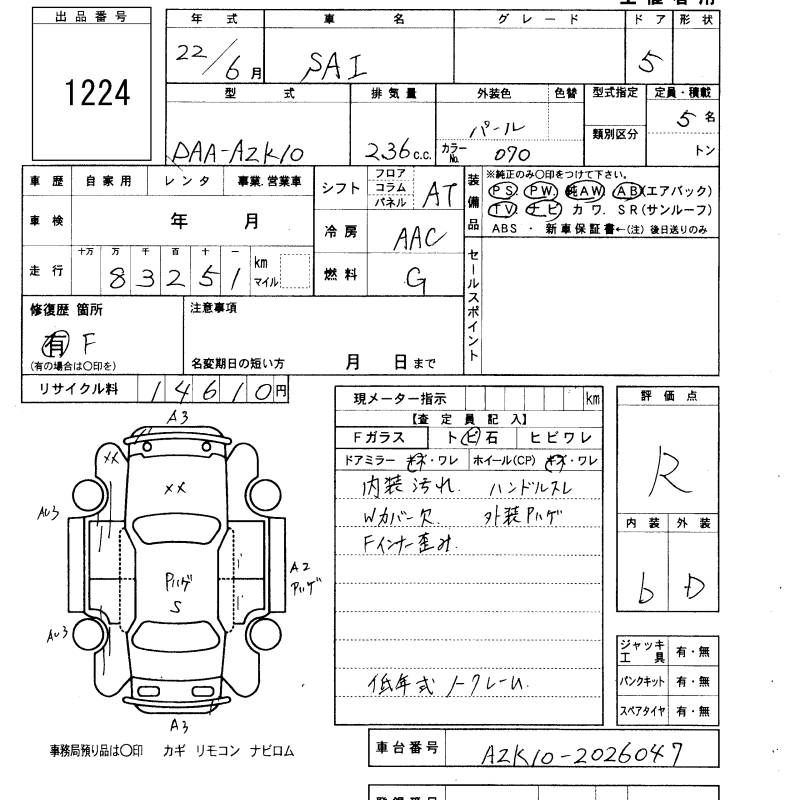 出品番号
1224
年 式 車 名 グレード ドア 形状
22/6月 SAI 5
型 式 排気量 外装色 色替 型式指定 定員・積載
DAA-AZK10 236c.c. パール 5名
カラーNo. 070 類別区分 トン
車歴 自家用 レンタ 事業.営業車
車検 年 月
走行 十万 万 千 百 十 一
83251 km マイル
シフト フロア コラム パネル AT
冷房 AAC
燃料 G
装備品
※純正のみ〇印をつけて下さい。
PS PW 純AW AB(エアバック)
TV ナビ カワ. SR(サンルーフ)
ABS ・ 新車保証書←(注) 後日送りのみ
セールスポイント
修復歴 箇所
有 F
(有の場合は〇印を)
注意事項
名変期日の短い方 月 日まで
リサイクル料 14610円
現メーター指示 km
【査定員記入】
Fガラス トビ石 ヒビワレ
ドアミラー キズ・ワレ ホイール(CP) キズ・ワレ
内装汚れ. ハンドルスレ
Wカバー欠 外装Pハゲ
Fインナー歪み.
低年式ノークレーム.
評価点
R
内装 外装
b D
ジャッキ工具 有・無
パンクキット 有・無
スペアタイヤ 有・無
A3
XX
XX
AU3
A2
Pハゲ
Pハゲ
S
AU3
A3
事務局預り品は〇印 カギ リモコン ナビロム
車台番号 AZK10-2026047